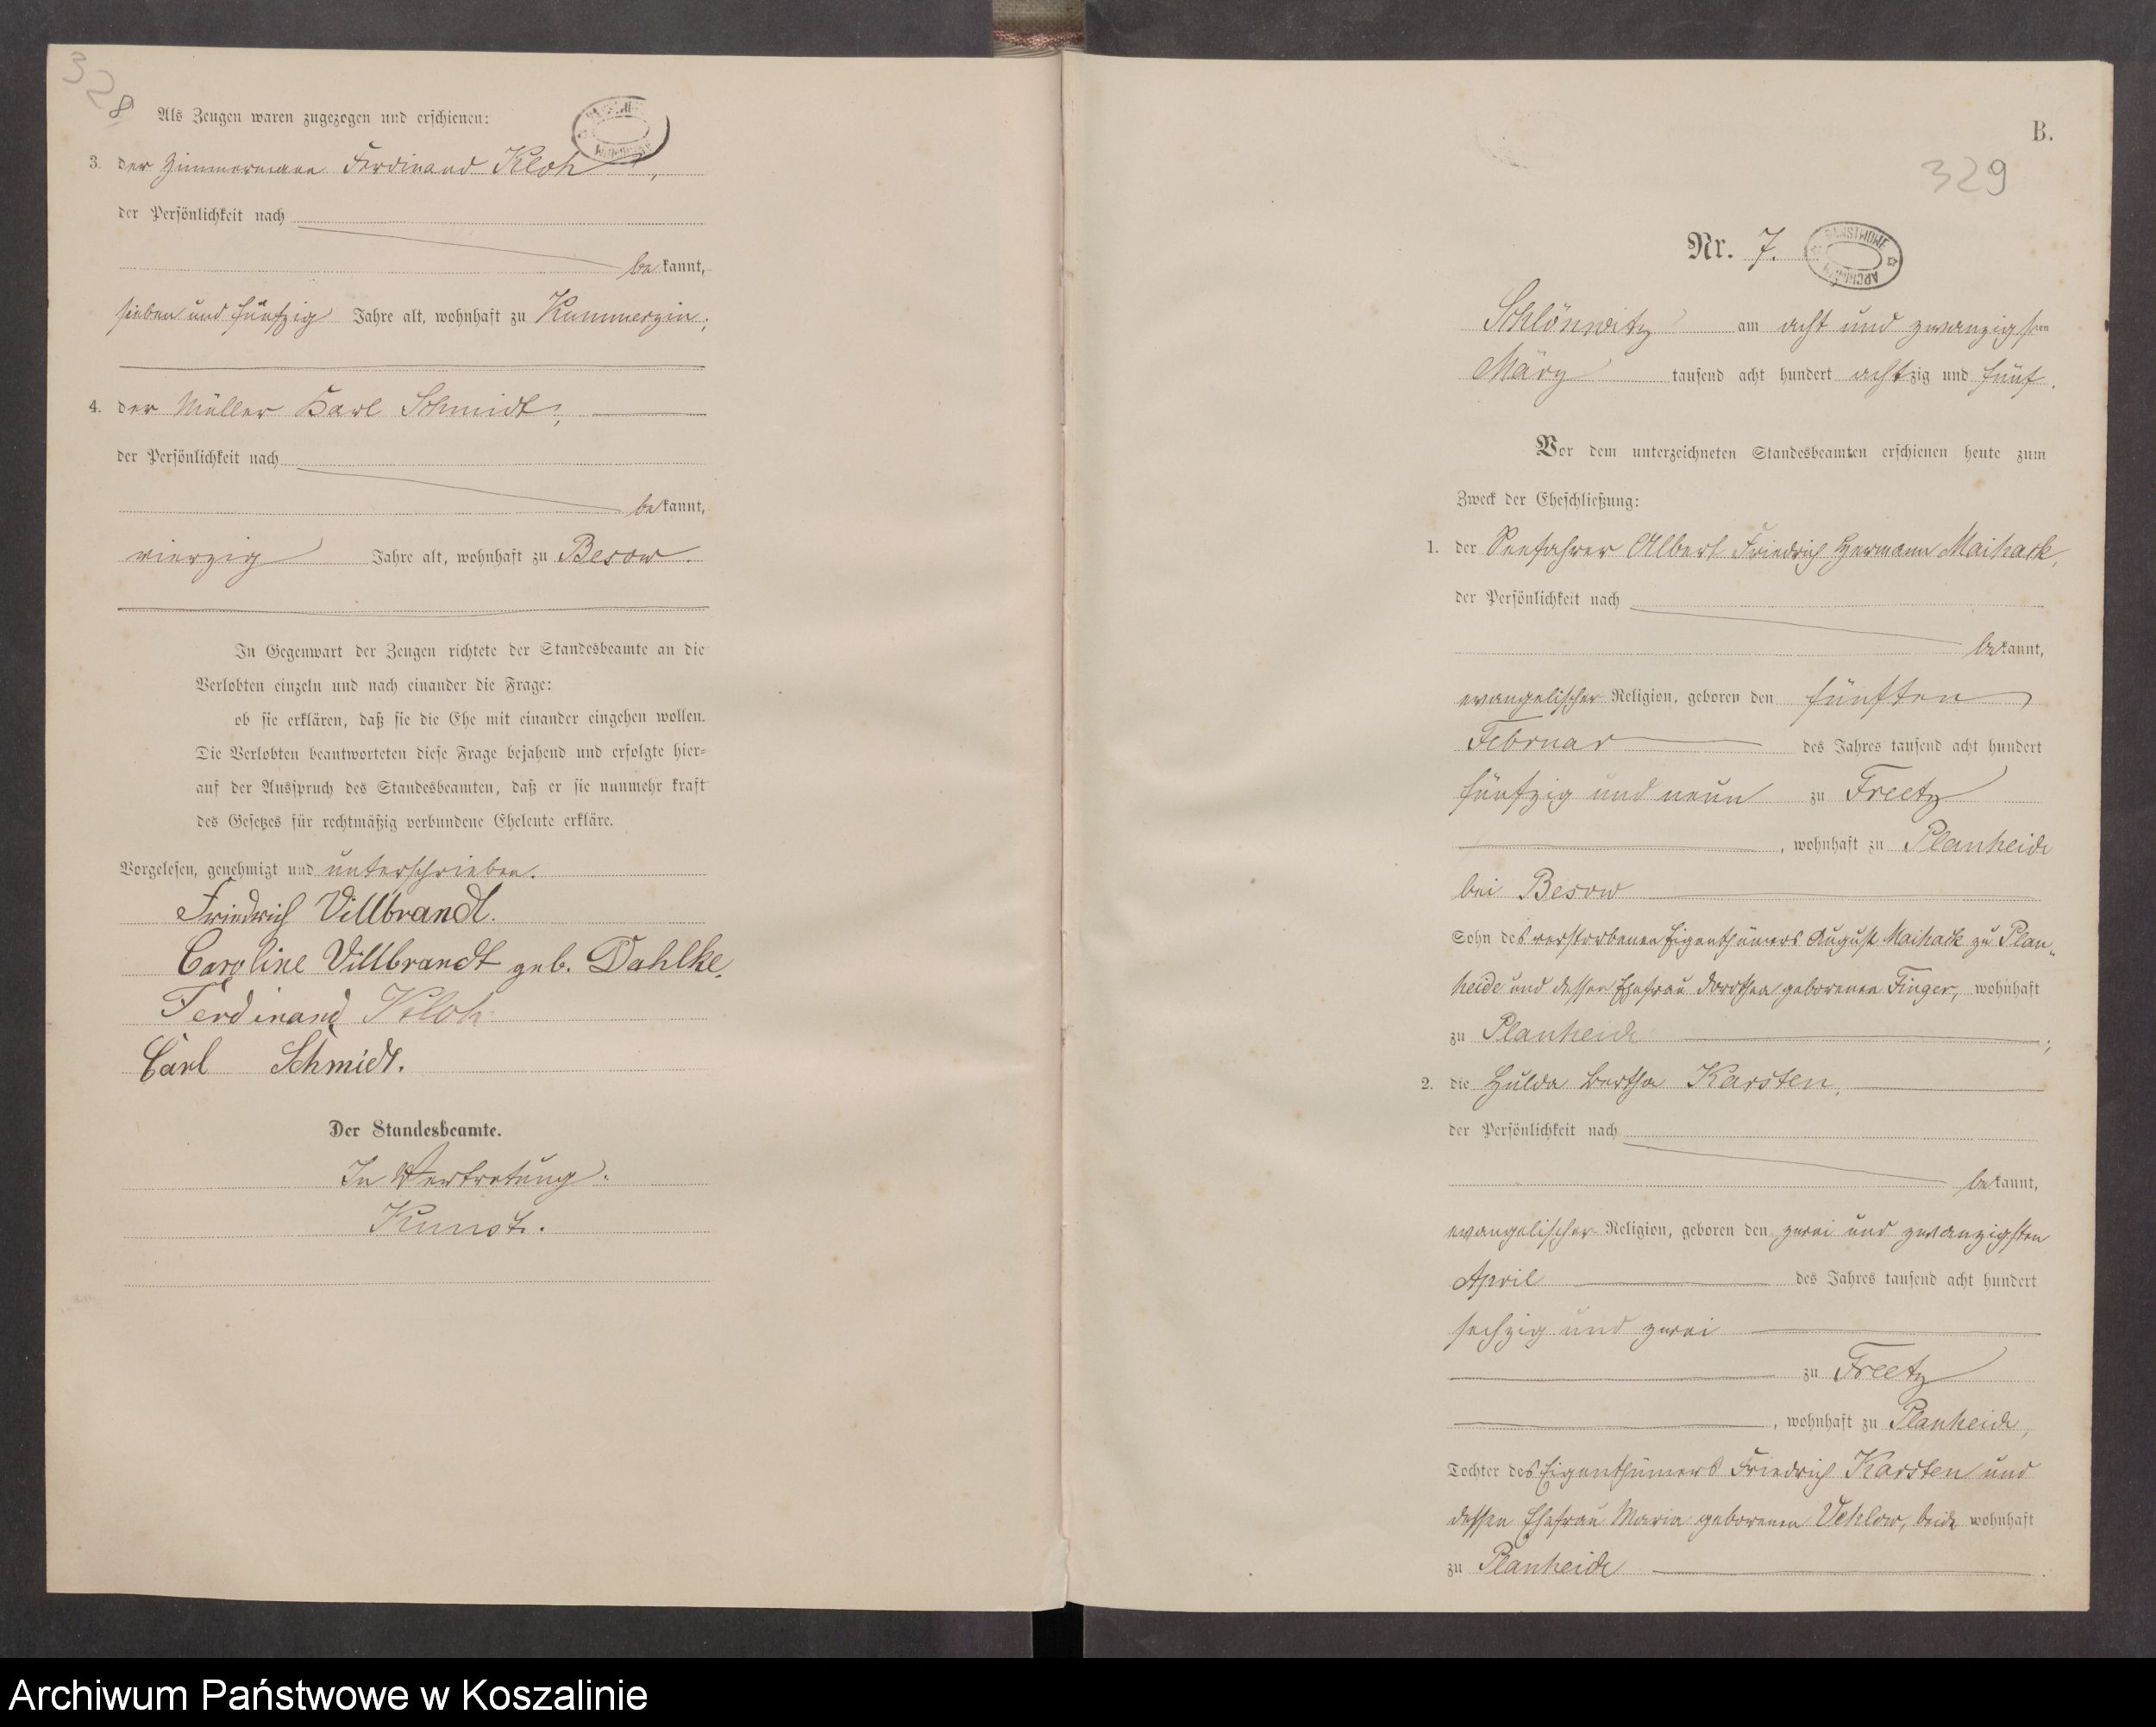 328
Als Zeugen waren zugezogen und erschienen:
3. der Zimmermann Ferdinand Kloh,
der Persönlichkeit nach
bekannt,
sieben und fünfzig Jahre alt, wohnhaft zu Kummerzin;
4. der Müller Karl Schmidt,
der Persönlichkeit nach
bekannt,
vierzig Jahre alt, wohnhaft zu Besow.
In Gegenwart der Zeugen richtete der Standesbeamte an die
Verlobten einzeln und nach einander die Frage:
ob sie erklären, daß sie die Ehe mit einander eingehen wollen.
Die Verlobten beantworteten diese Frage bejahend und erfolgte hier=
auf der Ausspruch des Standesbeamten, daß er sie nunmehr kraft
des Gesetzes für rechtmäßig verbundene Eheleute erkläre.
Vorgelesen, genehmigt und unterschrieben.
Friedrich Villbrandt.
Caroline Villbrandt geb. Dahlke.
Ferdinand Kloh
Carl Schmidt.
Der Standesbeamte.
In Vertretung.
Kunst.
B.
329
Nr. 7.
PAŃSTWOWE ARCHIWUM
Schlönwitz am acht und zwanzigsten
März tausend acht hundert achtzig und fünf.
Vor dem unterzeichneten Standesbeamten erschienen heute zum
Zweck der Eheschließung:
1. der Seefahrer Albert Friedrich Hermann Maihack,
der Persönlichkeit nach
bekannt,
evangelischer Religion, geboren den fünften
Februar des Jahres tausend acht hundert
fünfzig und neun zu Freetz
, wohnhaft zu Planheide
bei Besow
Sohn des verstorbenen Eigenthümers August Maihack zu Plan„
heide und dessen Ehefrau Dorothea geborenen Finger, wohnhaft
zu Planheide ;
2. die Hulda Bertha Karsten,
der Persönlichkeit nach
bekannt,
evangelischer Religion, geboren den zwei und zwanzigsten
April des Jahres tausend acht hundert
sechzig und zwei
zu Freetz
, wohnhaft zu Planheide,
Tochter des Eigenthümers Friedrich Karsten und
dessen Ehefrau Maria geborenen Vehlow, beide wohnhaft
zu Planheide .
Archiwum Państwowe w Koszalinie